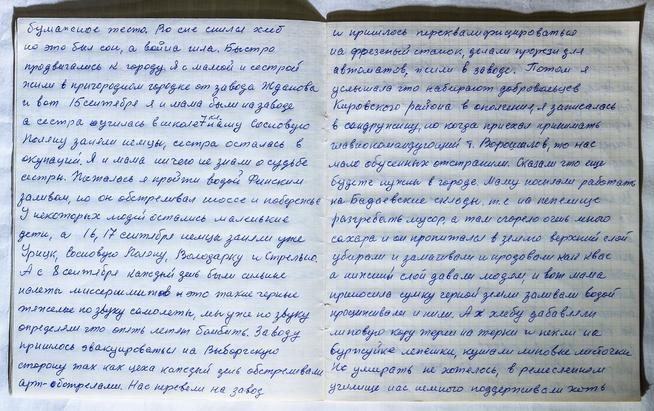 бумажное тесто. Во сне снился хлеб
но это был сон, а война шла. Быстро
продвигались к городу. Я с мамой и сестрой
жили в пригородном городке от завода Жданова
и вот 15 сентября я и мама были на заводе
а сестра училась в школе 7 кл. нашу Сосновую
Поляну заняли немцы, сестра осталась в
окупации. Я и мама ничего не знали о судьбе
сестры. Пыталась я пройти водой Финским
заливом, но он обстреливал шоссе и побережье
У некоторых людей остались маленькие
дети, а 16, 17 сентября немцы заняли уже
Урицк, Сосновую Поляну, Володарку и Стрельно.
А с 8 сентября каждый день были сильные
налеты миссершмитов и это такие черные
тяжелые по звуку самолеты, мы уже по звуку
определяли что опять летят бомбить. Заводу
пришлось эвакуироваться на Выборгскую
сторону так как цеха каждый день обстреливали
арт-обстрелами. Нас перевели на завод
и пришлось переквалифицироваться
на фрезеный станок, делали прорези для
автоматов, жили в заводе. Потом я
услышала что набирают добровольцев
Кировского района в ополчение, я записалась
в сандружину, но когда приехал принимать
главнокомандующий т. Ворошилов, то нас
мало обученных отстранили. Сказали что еще
будете нужны в городе. Маму послали работать
на Бадаевские склады. т.е на пепелище
разгребать мусор, а там сгорело очень много
сахара и он пропитался в землю верхний слой
убирали и заливали и продовали как квас
а нижний слой давали людям, и вот мама
приносила сумку черной земли заливали водой
процеживали и пили. А к хлебу добавляли
липовую кору терли на терки и пекли на
буржуйке лепешки, кушали липовые листочки
Но умирать не хотелось, в ремесленном
училище нас немного поддерживали хоть